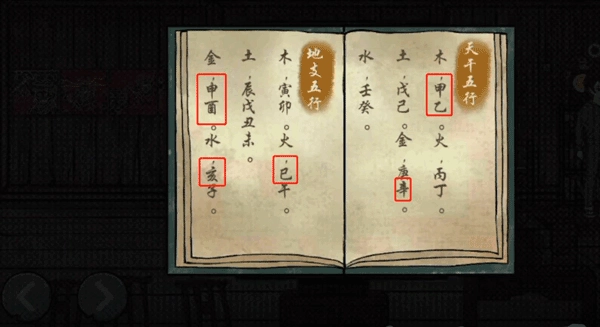 天干五行
木，甲乙。火，丙丁
土，戊己。金，庚辛。
水，壬癸。
地支五行
木，寅卯。火，巳午。
土，辰戌丑未。
金，申酉。水，亥子。